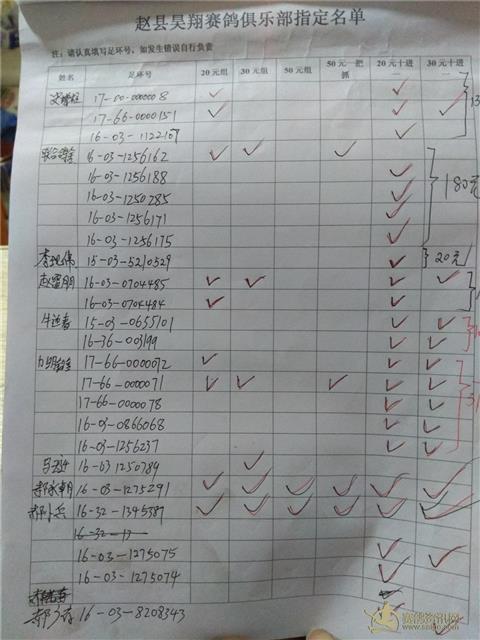 赵县昊翔赛鸽俱乐部指定名单
注：请认真填写足环号，如发生错误自行负责
姓名 足环号 20元组 30元组 50元组 50元一把抓 20元十进一 30元十进一
17-00-0000008
17-66-0000151
16-03-1122107
16-03-1256162
16-03-1256188
16-03-1250285 180元
16-03-1256171
16-03-1256175
15-03-5210529 20元
16-03-0704485
16-03-0704484
15-03-0655101
16-36-003199
17-66-0000072
17-66-0000071
17-66-0000078
16-03-0866068
16-03-1256237
16-03 1250789
郝永朝 16-03-1275291
郝小兵 16-32-1345387
16-32-13
16-03-1275075
16-03-1275074
16-03-8208343
赛鸽资讯网